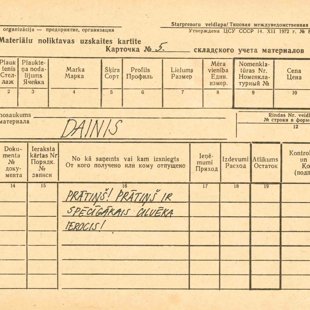 Starpresoru veidlapa/Типовая междуведомственная
organizācija — предприятие, организация
Утверждена ЦСУ СССР 14. XII 1972 г. №
Materiālu noliktavas uzskaites kartīte
Карточка № 5. складского учета материалов
Plauk- tenis Стел- лаж
Plaukte- ņa noda- lījums Ячейка
Marka Марка
Šķira Сорт
Profils Профиль
Lielums Размер
Mēra vienība Един. измер.
Nomenkla- tūras Nr. Номенкла- турный №
Cena Цена
1 2 3 4 5 6 8 9 10
nosaukums
материала
DAINIS
Rindas Nr. veidl
№ строки в форм
12
Doku- menta № до- ку- мента
Ieraksta kārtas Nr Поряд. № записи
No kā saņemts vai kam izsniegts От кого получено или кому отпущено
Ieņē- mumi Приход
Izdevumi Расход
Atlikums Остаток
14 15 16 17 18 19
PRĀTIŅŠ! PRĀTIŅŠ IR
SPĒCĪGĀKAIS CILVĒKA
IEROCIS!